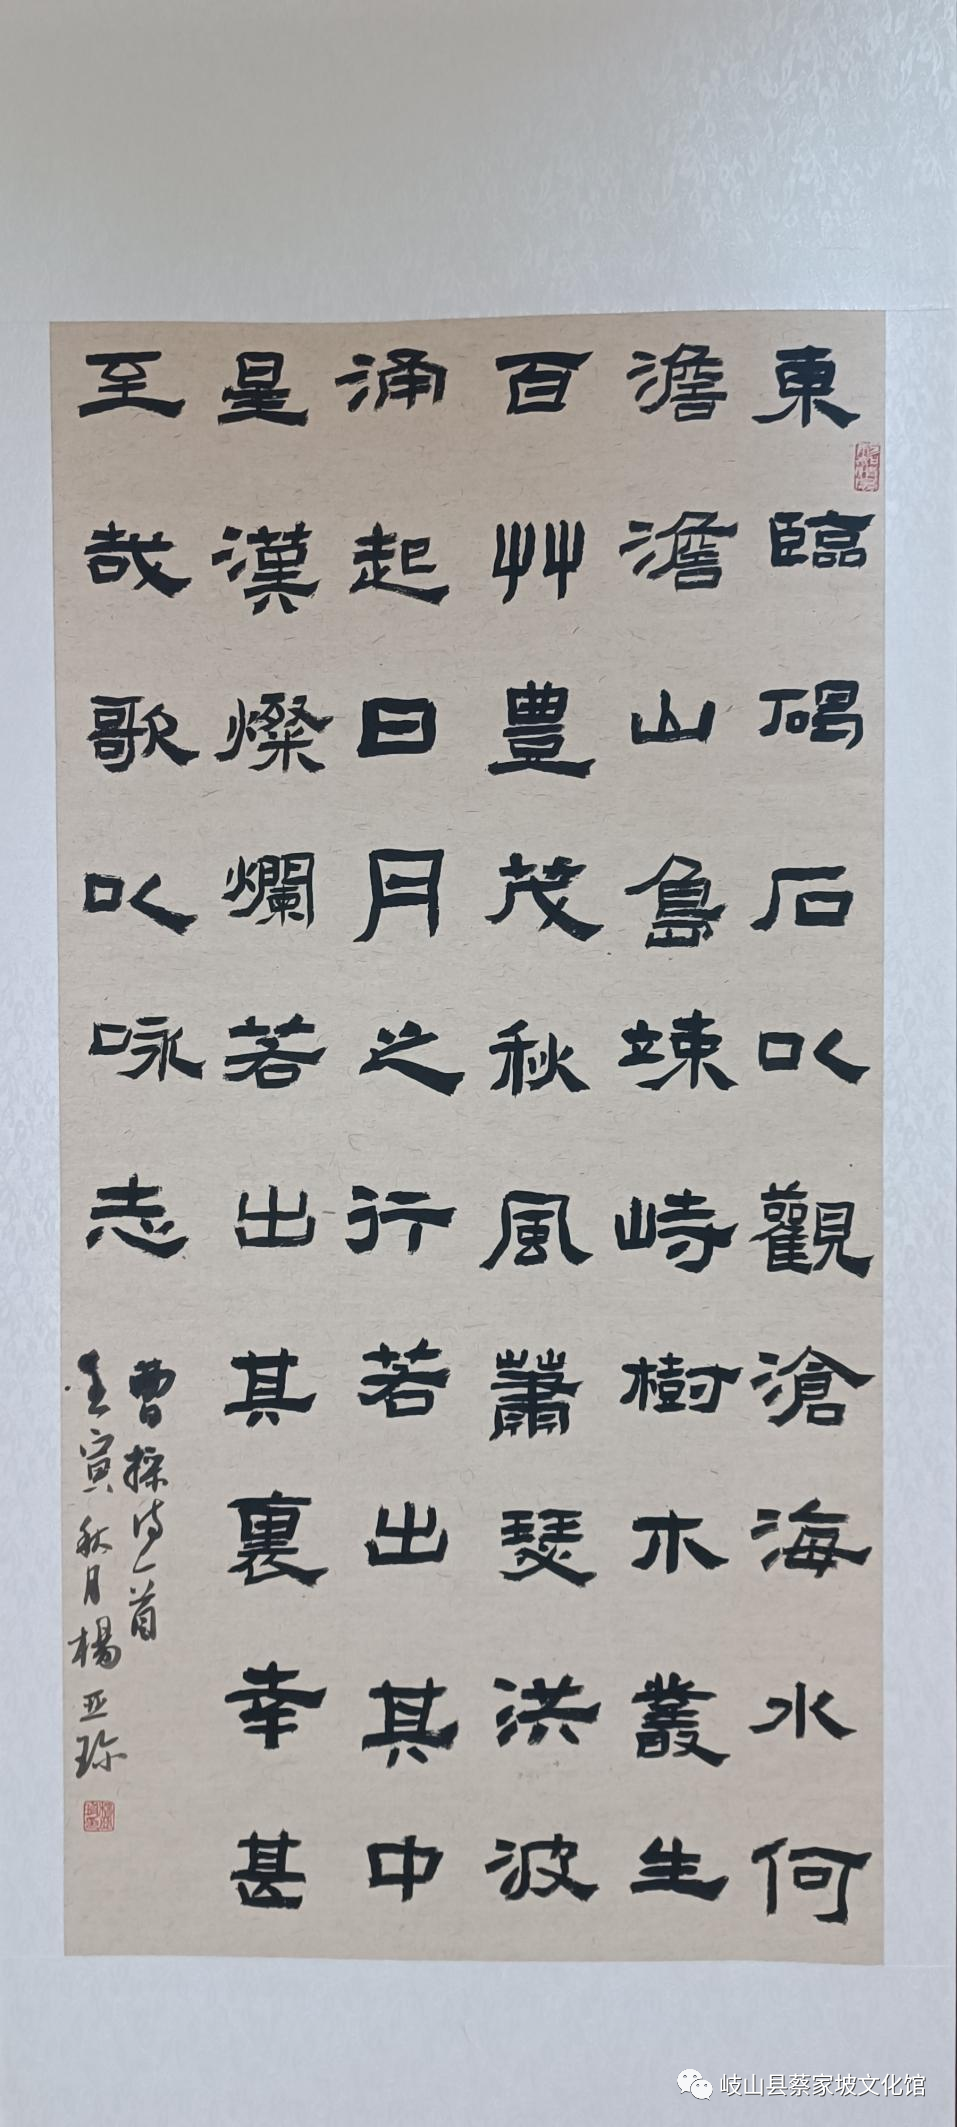 東臨碣石以觀滄海水何
澹澹山島竦峙樹木叢生
百艸豊茂秋風蕭瑟洪波
涌起日月之行若出其中
星漢燦爛若出其裏幸甚
至哉歌以咏志
曹操诗一首
壬寅秋月楊亚珍
岐山县蔡家坡文化馆